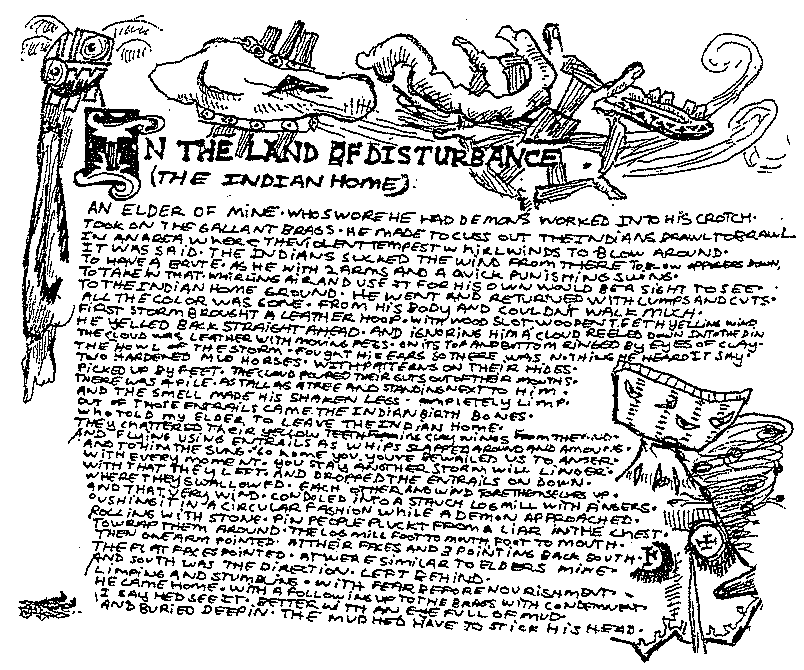 IN THE LAND OF DISTURBANCE
(THE INDIAN HOME):
AN ELDER OF MINE · WHO SWORE HE HAD DEMONS WORKED INTO HIS CROTCH ·
TOOK ON THE GALLANT BRAGS · HE MADE TO CUSS OUT THE INDIANS BRAWL TO BRAWL
IN AN AREA WHERE THE VIOLENT TEMPEST WHIRLWINDS TO BLOW AROUND ·
IT WAS SAID · THE INDIANS SUCKED THE WIND FROM THERE TO BLOW DOWN,
TO HAVE A BRUTE · AS HE WITH 2 ARMS AND A QUICK PUNISHING SWING ·
TO TAKE IN THAT WHIRLING AIR AND USE IT FOR HIS OWN WOULD BE A SIGHT TO SEE ·
TO THE INDIAN HOME GROUND · HE WENT AND RETURNED WITH LUMPS AND CUTS ·
ALL THE COLOR WAS GONE · FROM HIS BODY AND COULDN'T WALK MUCH ·
FIRST STORM BROUGHT A LEATHER HOOF · WITH WOOD SLOT WOODEN TEETH YELLING WIND
HE YELLED BACK STRAIGHT AHEAD · AND IGNORING HIM A CLOUD REELED DOWN INTO THE DIN
THE CLOUD WAS LEATHER WITH MOVING PEGS · ON ITS TOP AND BOTTOM RINGED BY EYES OF CLAY ·
THE HOWL OF THE STORM · FOUGHT HIS EARS SO THERE WAS NOTHING HE HEARD IT SAY ·
TWO HARDENED MUD HORSES · WITH PATTERNS ON THEIR HIDES ·
PICKED UP BY FEET · THE CLOUD POURED THEIR GUTS OUT OF THEIR MOUTHS ·
THERE WAS A PILE · AS TALL AS A TREE AND STANDING NEXT TO HIM ·
AND THE SMELL MADE HIS SHAKEN LEGS · COMPLETELY LIMP ·
OUT OF THOSE ENTRAILS CAME THE INDIAN BIRTH BONES ·
WHO TOLD MY ELDER TO LEAVE THE INDIAN HOME ·
THEY CHATTERED THEIR YELLOW TEETH FORMING CLAY WINGS FROM THE
AND FLYING USING ENTRAILS AS WHIPS SLIPPED AROUND AND AMOUNGS ·
AND TO HIM THE SUNG · GO HOME YOU YOU'VE BEWAILED US TO ANGER ·
WITH EVERY MOMENT · YOU STAY ANOTHER STORM WILL LINGER ·
WITH THAT THEY LEFT AND DROPPED THE ENTRAILS ON DOWN ·
WHERE THEY SWALLOWED · EACH OTHER AND WIND TORE THEMSELVES UP ·
AND THAT VERY WIND · CONDLED INTO A STAUCH LOG MILL WITH FINGERS ·
OUSHING IT IN A CIRCULAR FASHION WHILE A DEMON APPROACHED ·
ROLLING WITH STONE · PIN PEOPLE PLUCKT FROM A LIAR IN THE CHEST ·
TO WRAP THEM AROUND · THE LOG MILL FOOT TO MOUTH, FOOT TO MOUTH ·
THEN ONE ARM POINTED · AT THEIR FACES AND 3 POINTING BACK SOUTH ·
THE FLAT FACES POINTED · AT WERE SIMILAR TO ELDERS MINE ·
AND SOUTH WAS THE DIRECTION · LEFT BEHIND ·
LIMPING AND STUMBLING · WITH FEAR BEFORE NOURISHMENT ·
HE CAME HOME · WITH A FOLLOWING UP TO THE BRAGS WITH
I SAY HED SEE IT · BETTER WITH AN EYE FULL OF MUD ·
AND BURIED DEEP IN · THE MUD HED HAVE TO STICK HIS HEAD ·